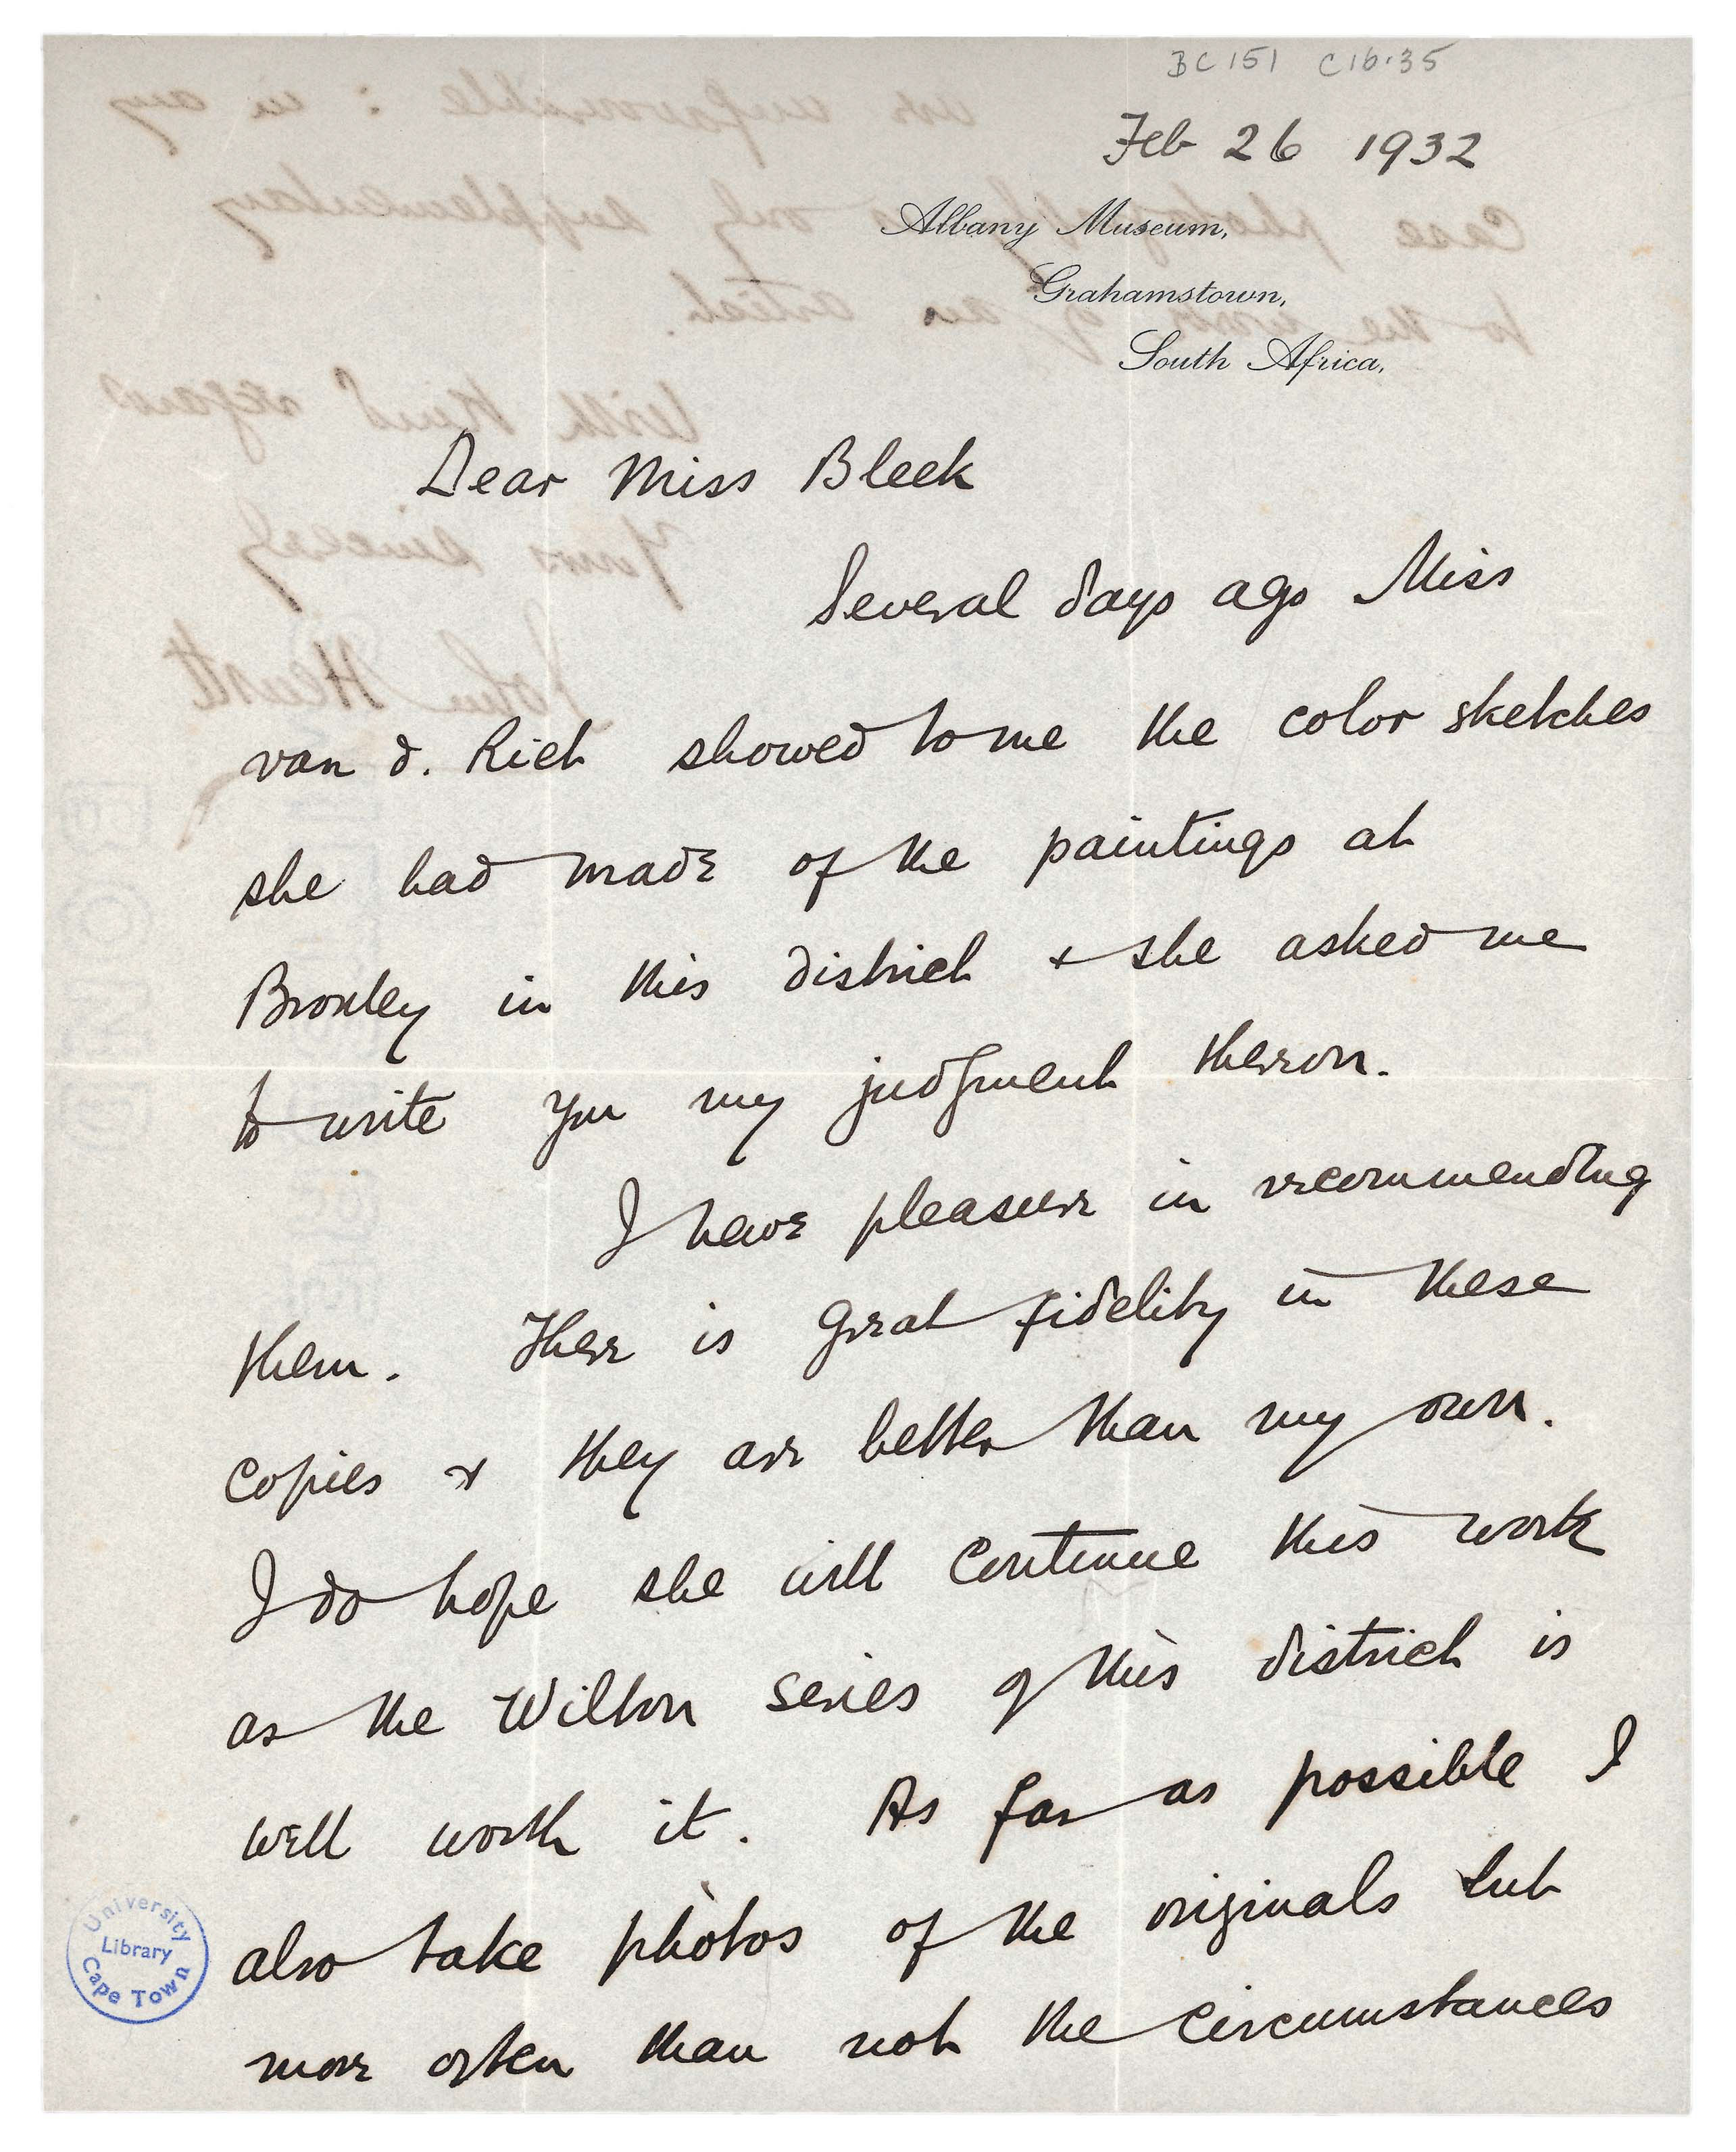 BC 151 C16.35
Feb 26 1932
Albany Museum,
Grahamstown,
South Africa.
Dear Miss Bleek
Several days ago Miss
van d. Riet showed to me the color sketches
she had made of the paintings at
in this district & she asked me
to write you my judgment thereon.
I have pleasure in recommending
them. There is great fidelity in these
copies & they are better than my own.
I do hope she will continue this work
as the Wilton series of this district is
well worth it. As far as possible I
also take photos of the originals but
more often than not the circumstances
University
Library
Cape Town
are unfavourable : in any
case photographs only supplementary
to the work of an artist.
With kind regards
Yours sincerely
John Hewitt